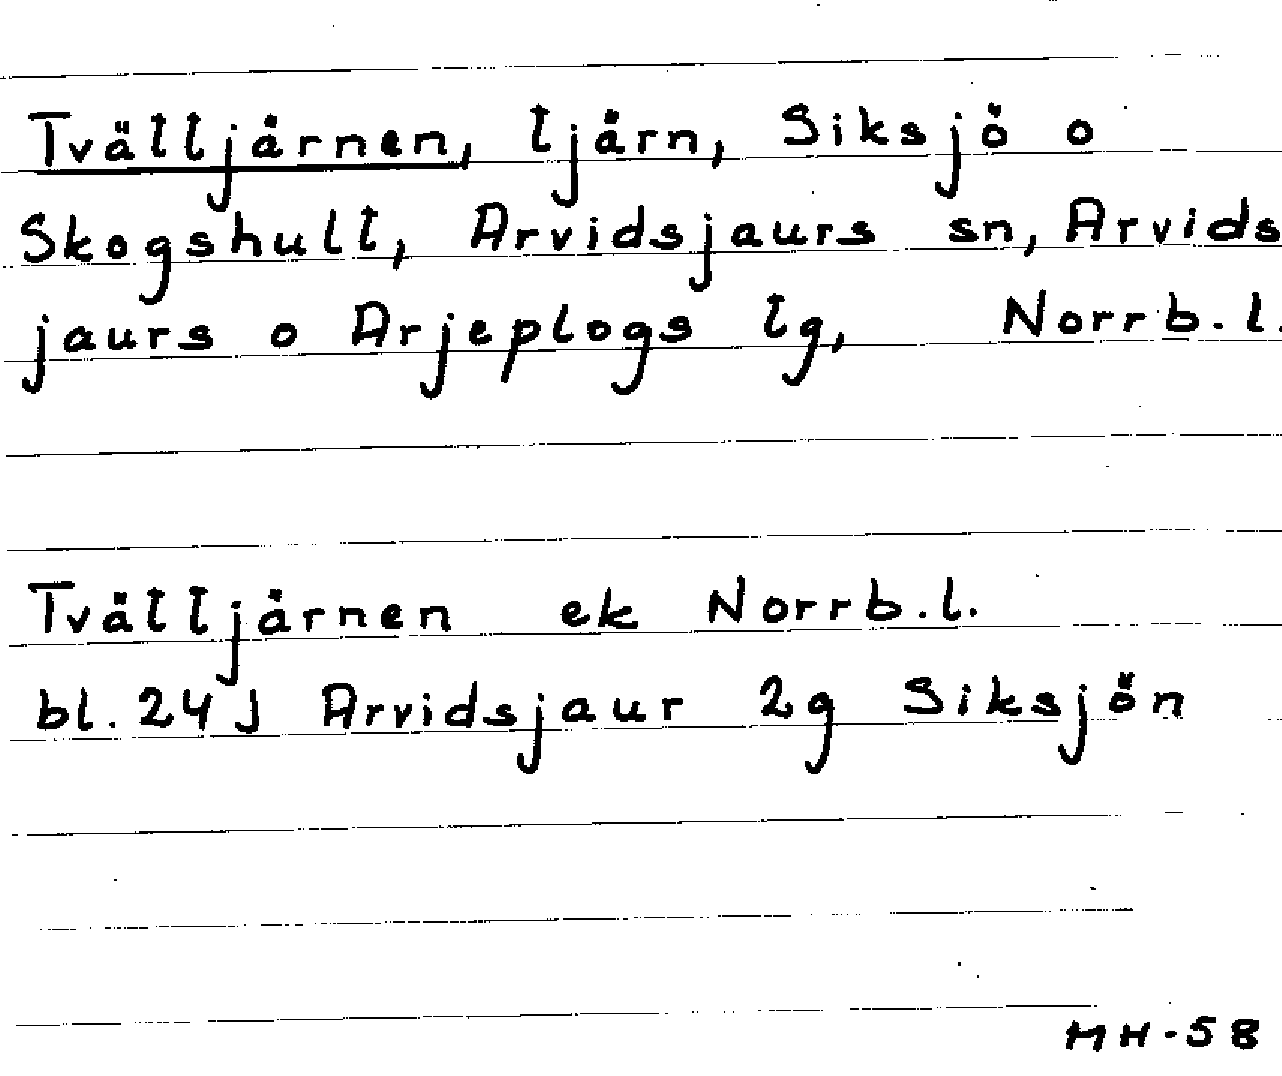 Tvättjärnen, tjärn, Siksjö o
Skogshult, Arvidsjaurs sn, Arvids
jaurs o Arjeplogs tg, Norrb.l.
Tvättjärnen ek Norrb.l.
bl. 24J Arvidsjaur 2g Siksjön
MH-58